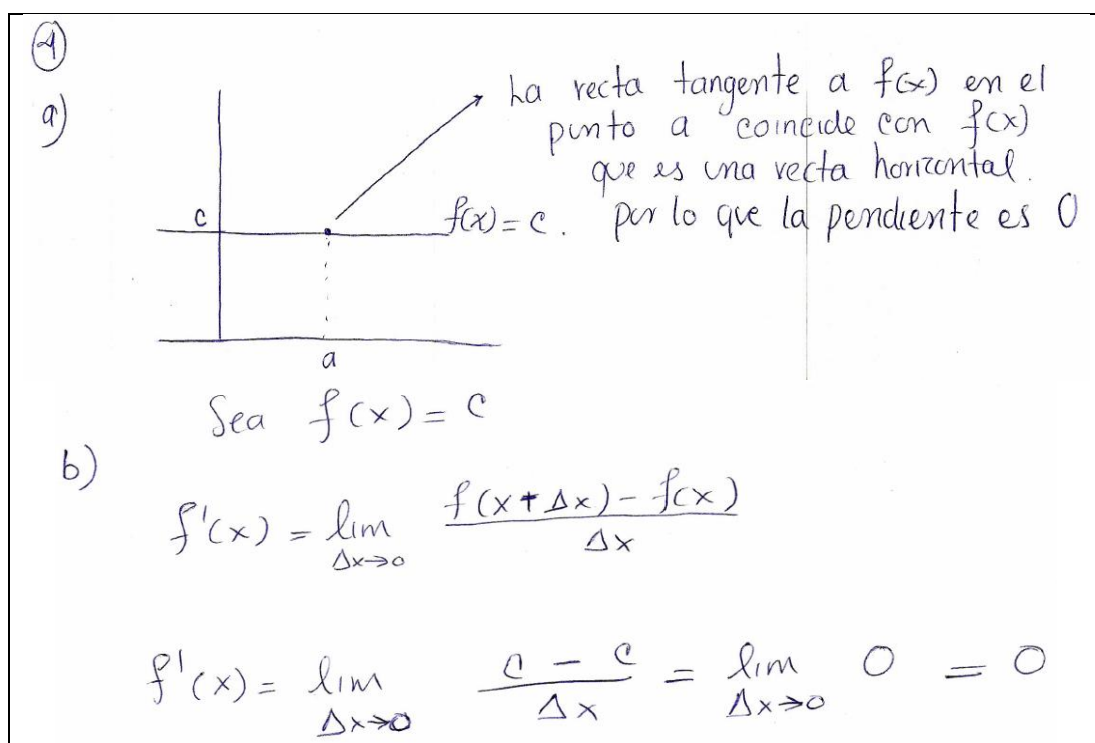 ④
a)
La recta tangente a f(x) en el
punto a coincide con f(x)
que es una recta horizontal.
por lo que la pendiente es 0
c
f(x) = c.
a
Sea f(x) = c
b)
f'(x) = lim_{Δx→0} \frac{f(x+Δx) - f(x)}{Δx}
f'(x) = lim_{Δx→0} \frac{c - c}{Δx} = lim_{Δx→0} 0 = 0